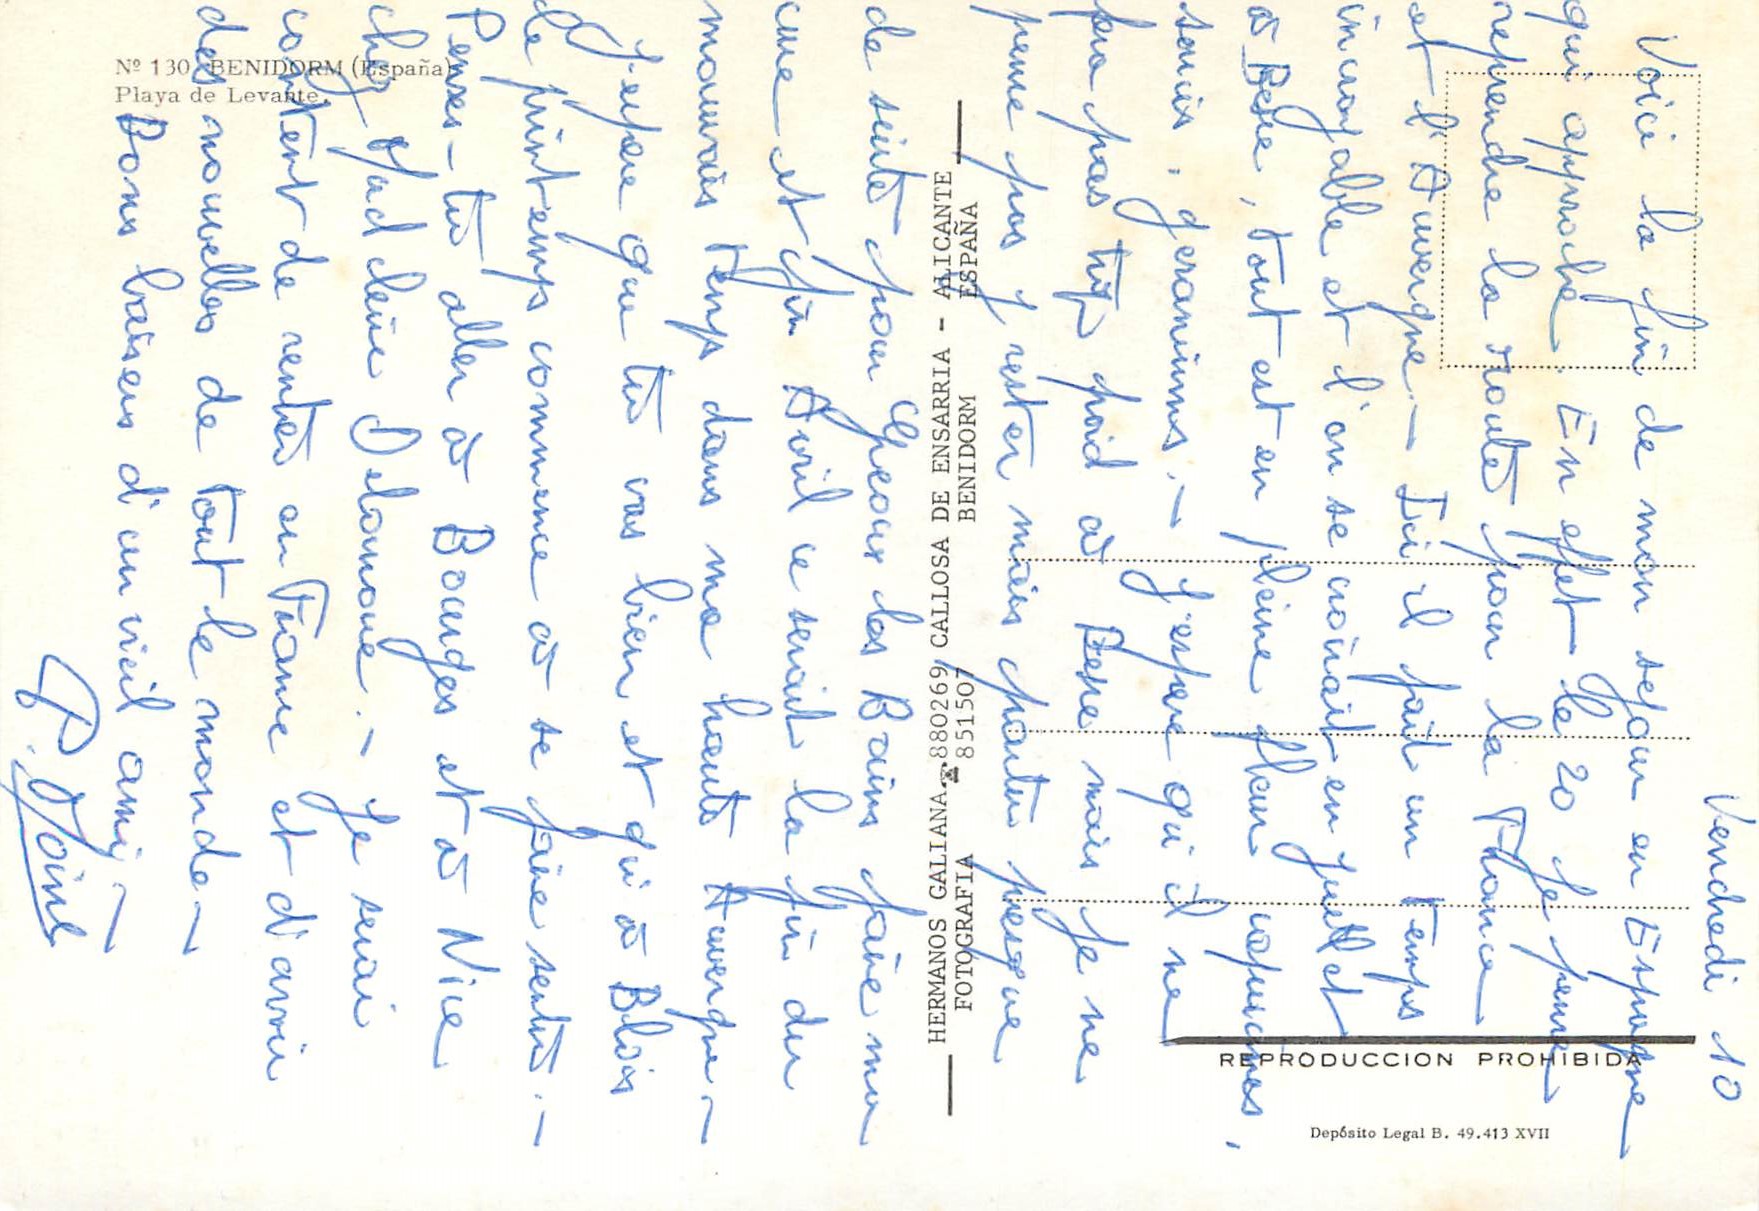 Nº 130 BENIDORM (España)
Playa de Levante.
HERMANOS GALIANA. ☎ 880269 CALLOSA DE ENSARRIA - ALICANTE
FOTOGRAFIA 851507 BENIDORM ESPAÑA
REPRODUCCION PROHIBIDA
Depósito Legal B. 49.413 XVII
Vendredi 10
Voici la fin de mon sejour en Espagne
qui approche. En effet le 20 je pense
reprendre la route pour la France
et l'Auvergne. — Ici il fait un temps
incroyable et l'on se croirait en juillet
à Besse, tout est en pleine fleur capucines,
soucis, geraniums. — J'espere qu'il ne
fera pas trop froid à Besse mais je ne
pense pas y rester mais partir presque
de suite pour les Bains faire ma
cure et fin Avril ce serait la fin du
mauvais temps dans ma haute Auvergne. —
J'espere que tu vas bien et qu'à Blois
le printemps commence à se faire sentir. —
Penses-tu aller à Bourges et à Nice
chez Delamare. — Je serai
content de rentrer en France et d'avoir
des nouvelles de tout le monde —
Bons baisers d'un vieil ami —